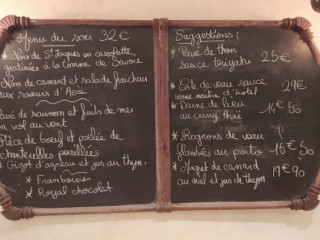 Menu du soir 32€
* Noix de St Jacques en cassolette,
gratinées à la Tomme de Savoie
de canard et salade fraicheur
aux saveurs d'Asie
Pavé de saumon et fruits de mer
en vol au vent
Pièce de boeuf et poêlée de
chanterelles persillées
* Gigot d'agneau et jus au thym,
* Framboisier
* Royal chocolat
Suggestions:
* Pavé de thon
sauce teriyaki 25€
* Tête de veau sauce
maison d'hotel 29€
* Dame de lieu
au curry thaï 14€50
* Rognons de veau
flambés au porto 15€50
* Magret de canard
au miel et jus de thym 19€90